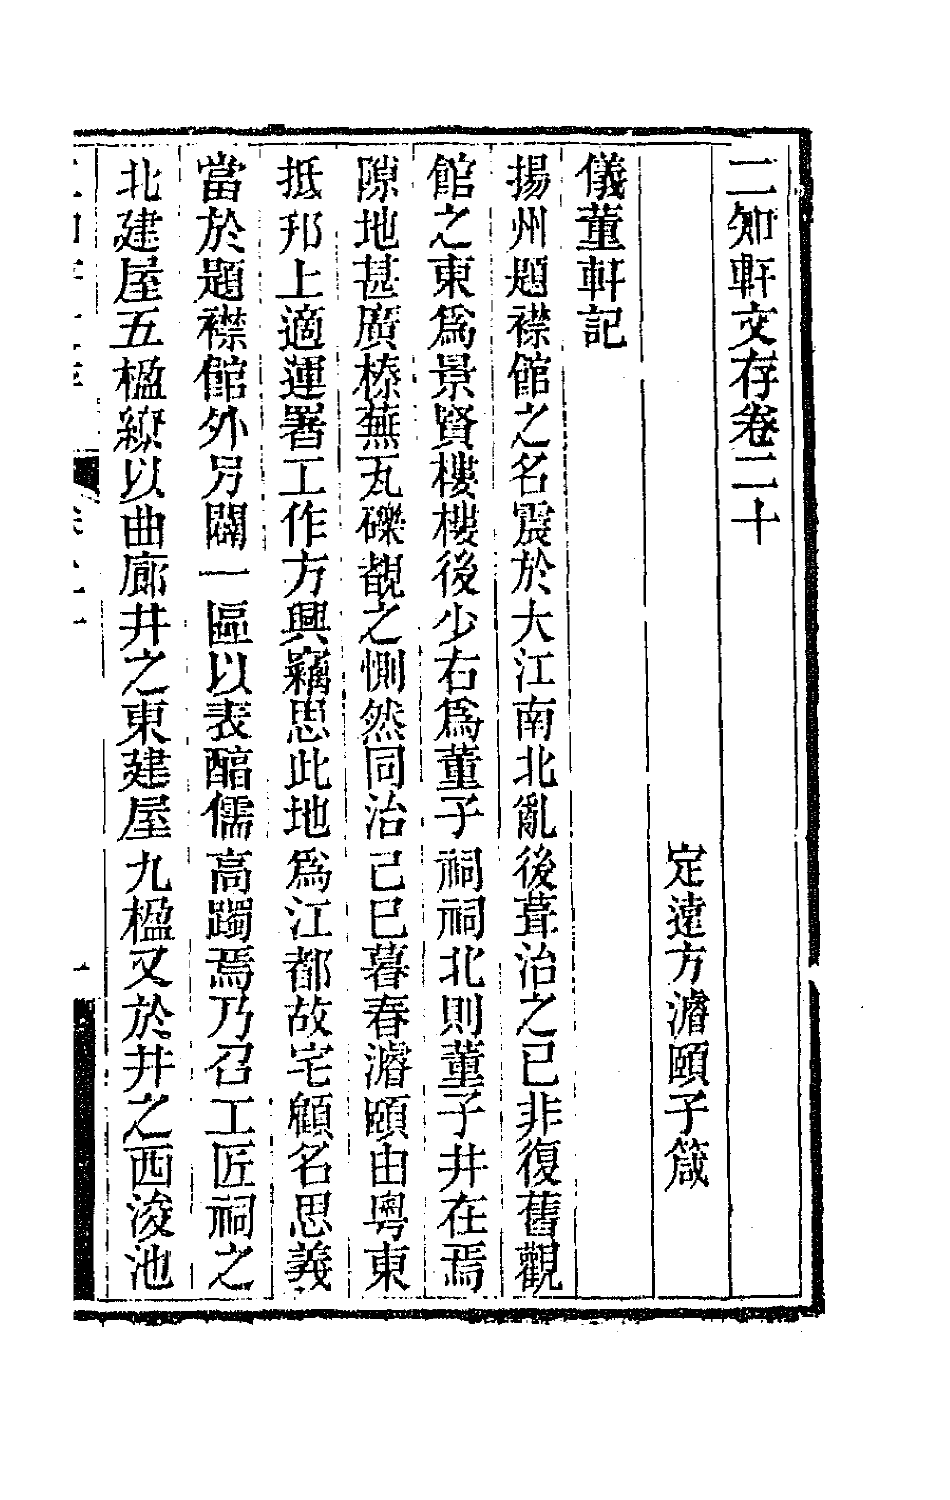 二知軒文存卷二十
定遠方濬頤子箴
儀董軒記
揚州題襟館之名震於大江南北亂後葺治之已非復舊觀
館之東爲景賢樓樓後少右爲董子祠祠北則董子井在焉
隙地甚廣榛蕪瓦礫覩之惻然同治己巳暮春濬頤由粵東
抵邗上適運署工作方興竊思此地爲江都故宅顧名思義
當於題襟館外另闢一區以表醕儒高躅焉乃召工匠祠之
北建屋五楹繚以曲廊井之東建屋九楹又於井之西浚池